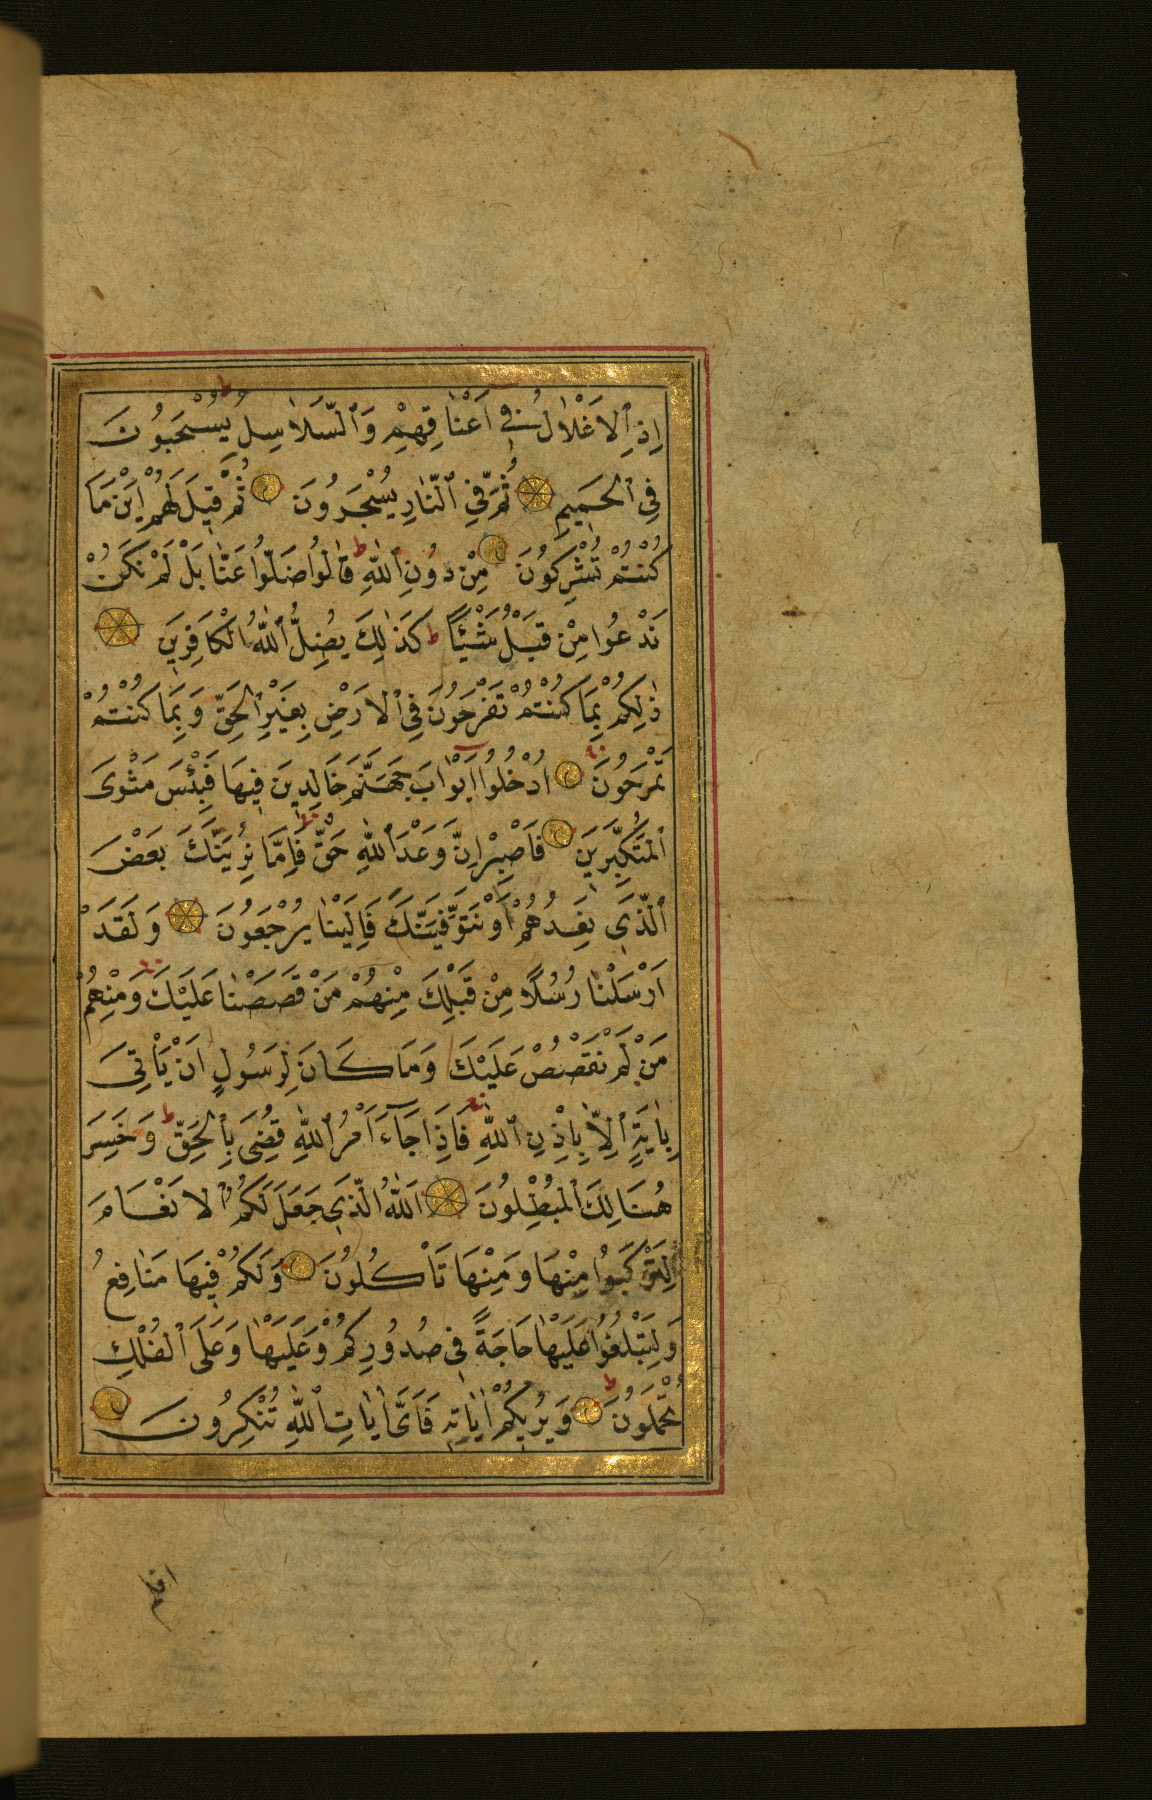 اِذِ الْاَغْلَالُ فٖى اَعْنَاقِهِمْ وَالسَّلَاسِلُ ط يُسْحَبُونَ
فِى الْحَمٖيمِ ثُمَّ فِى النَّارِ يُسْجَرُونَ ثُمَّ قٖيلَ لَهُمْ اَيْنَ مَا
كُنْتُمْ تُشْرِكُونَ مِنْ دُونِ اللّٰهِ ط قَالُوا ضَلُّوا عَنَّا بَلْ لَمْ نَكُنْ
نَدْعُوا مِنْ قَبْلُ شَيْئًا ط كَذٰلِكَ يُضِلُّ اللّٰهُ الْكَافِرٖينَ
ذٰلِكُمْ بِمَا كُنْتُمْ تَفْرَحُونَ فِى الْاَرْضِ بِغَيْرِ الْحَقِّ وَبِمَا كُنْتُمْ
تَمْرَحُونَ اُدْخُلُوا اَبْوَابَ جَهَنَّمَ خَالِدٖينَ فٖيهَا فَبِئْسَ مَثْوَى
الْمُتَكَبِّرٖينَ فَاصْبِرْ اِنَّ وَعْدَ اللّٰهِ حَقٌّ فَاِمَّا نُرِيَنَّكَ بَعْضَ
الَّذٖى نَعِدُهُمْ اَوْ نَتَوَفَّيَنَّكَ فَاِلَيْنَا يُرْجَعُونَ وَلَقَدْ
اَرْسَلْنَا رُسُلًا مِنْ قَبْلِكَ مِنْهُمْ مَنْ قَصَصْنَا عَلَيْكَ وَمِنْهُمْ
مَنْ لَمْ نَقْصُصْ عَلَيْكَ وَمَا كَانَ لِرَسُولٍ اَنْ يَأْتِىَ
بِاٰيَةٍ اِلَّا بِاِذْنِ اللّٰهِ فَاِذَا جَآءَ اَمْرُ اللّٰهِ قُضِىَ بِالْحَقِّ ط وَخَسِرَ
هُنَالِكَ الْمُبْطِلُونَ اَللّٰهُ الَّذٖى جَعَلَ لَكُمُ الْاَنْعَامَ
لِتَرْكَبُوا مِنْهَا وَمِنْهَا تَأْكُلُونَ وَلَكُمْ فٖيهَا مَنَافِعُ
وَلِتَبْلُغُوا عَلَيْهَا حَاجَةً فٖى صُدُورِكُمْ وَعَلَيْهَا وَعَلَى الْفُلْكِ
تُحْمَلُونَ ط وَيُرٖيكُمْ اٰيَاتِهٖ فَاَىَّ اٰيَاتِ اللّٰهِ تُنْكِرُونَ
افلم